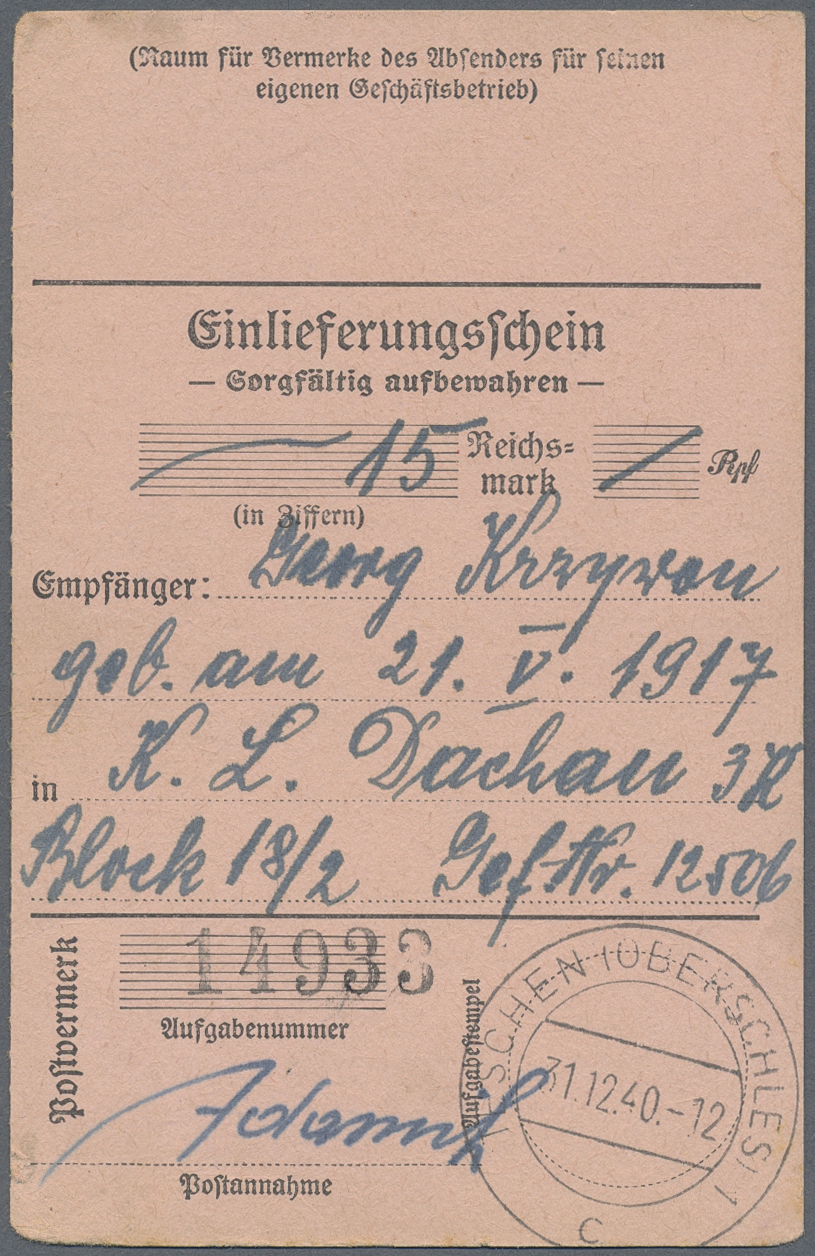 (Raum für Vermerke des Absenders für seinen
eigenen Geschäftsbetrieb)
Einlieferungsschein
— Sorgfältig aufbewahren —
15 Reichs=
mark / Rpf
(in Ziffern)
Empfänger: Georg
geb. am 21. V. 1917
in K. L. Dachau 3K
Block 18/2 Gef Nr. 12506
Postvermerk
14933
Aufgabenummer
Aufgabestempel
TESCHEN (OBERSCHLES) 1
31.12.40.-12
C
Postannahme